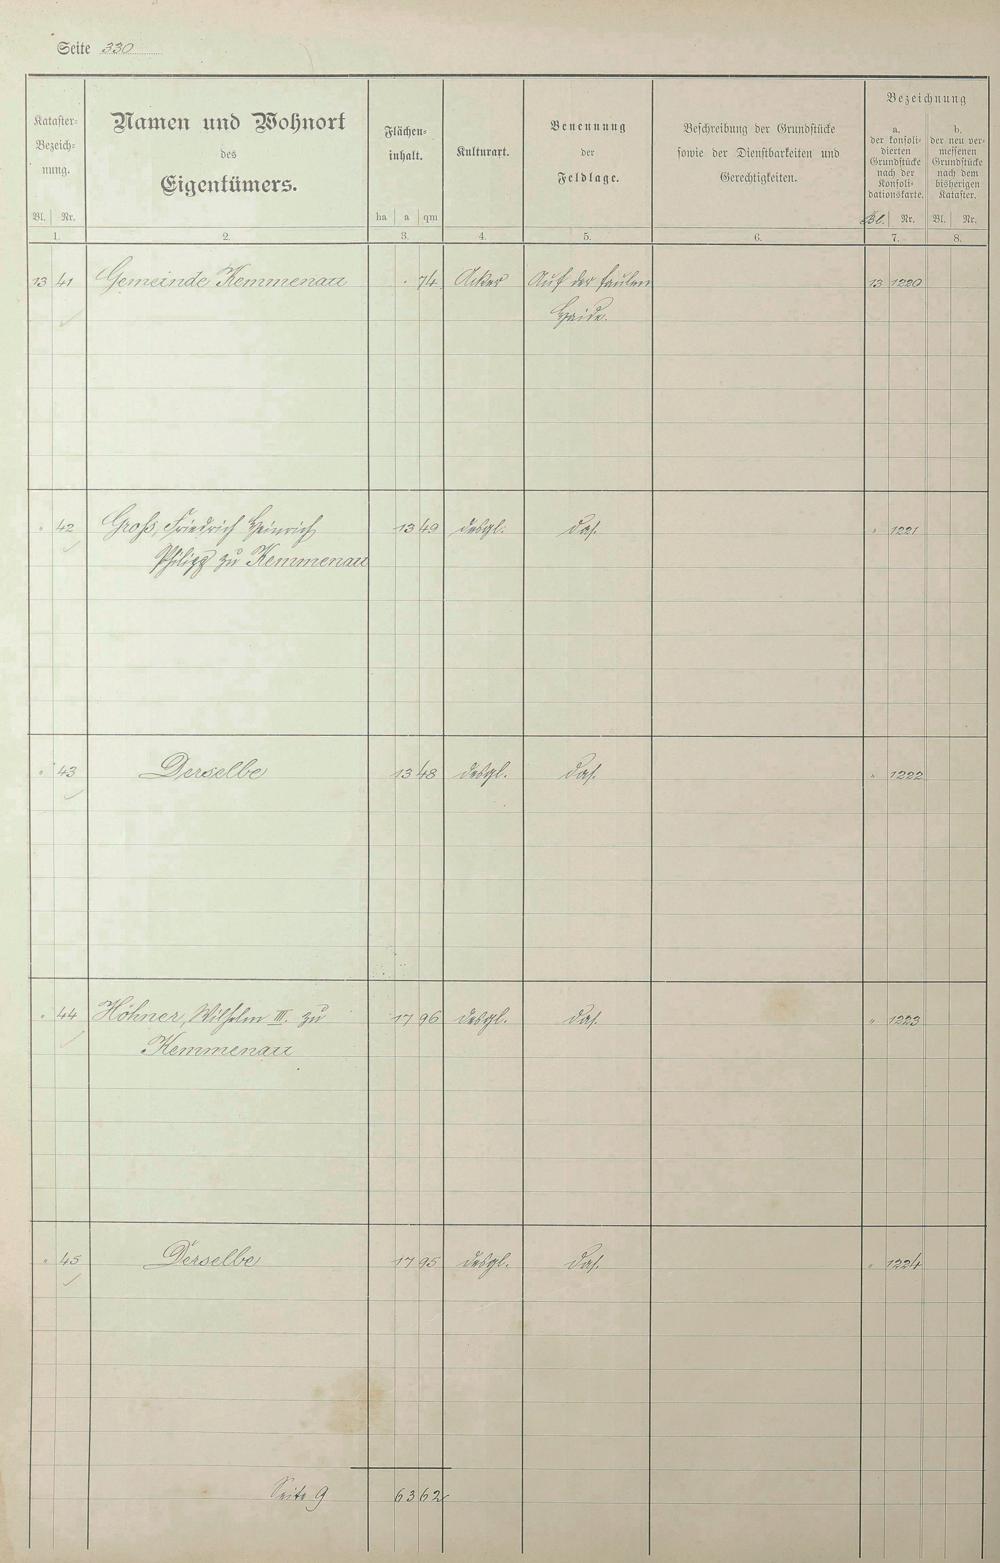 Seite 330
Kataster-
Bezeich-
nung.
Bl. Nr.
1.
Namen und Wohnort
des
Eigentümers.
2.
Flächen-
inhalt.
ha a qm
3.
Kulturart.
4.
Benennung
der
Feldlage.
5.
Beschreibung der Grundstücke
sowie der Dienstbarkeiten und
Gerechtigkeiten.
6.
Bezeichnung
a.
der konsoli-
dierten
Grundstücke
nach der
Konsoli-
dationskarte.
Bl. Nr.
7.
b.
der neu ver-
messenen
Grundstücke
nach dem
bisherigen
Kataster.
Bl. Nr.
8.
13 41 Gemeinde Kemmenau . 74 Acker Auf der faulen 13 1220
Haide.
" 42 Groß, Friedrich Heinrich 13 49 desgl. das. " 1221
Philipp zu Kemmenau
" 43 Derselbe 13 48 desgl. das. " 1222
" 44 Höhner, Wilhelm III. zu 17 96 desgl. das. " 1223
Kemmenau
" 45 Derselbe 17 95 desgl. das. " 1224
Seite 9 63 62